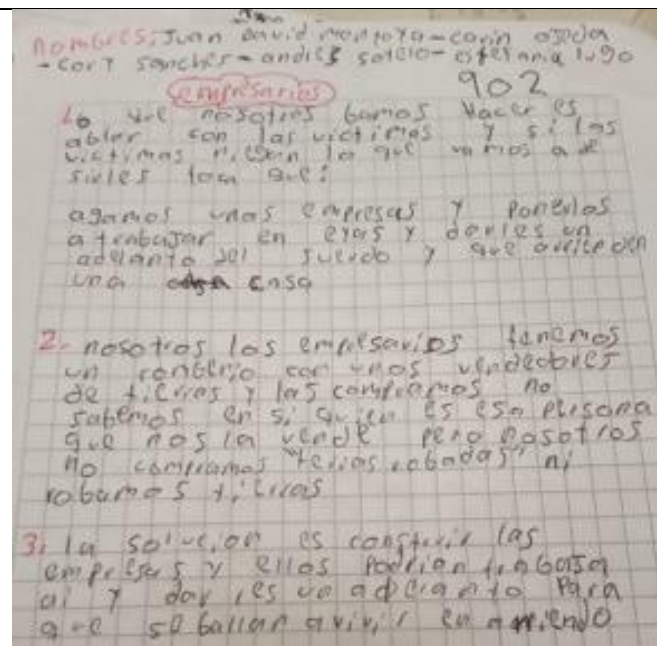 nombres: Juan David montoya - carin ojeda
- cory sanches - andres sotelo - estefania lugo
902
empresarios
Lo que nosotros bamos hacer es
abler con las victimas y si las
victimas niegan lo que vamos a de
sirles toca que:
agamos unas empresas y ponerlos
a trabajar en eyas y darles un
adelanto del sueldo y que
una casa
2. nosotros los empresarios tenemos
un conbenio con unos vendedores
de tierras y las compramos no
sabemos en si quien es esa persona
que nos la vende pero nosotros
no compramos "terras robadas" ni
robamos tierras
3. la solucion es construir las
empresas y ellos podrian trabaja
ai y dar les un adelanto para
que se ballan a vivir en arriendo